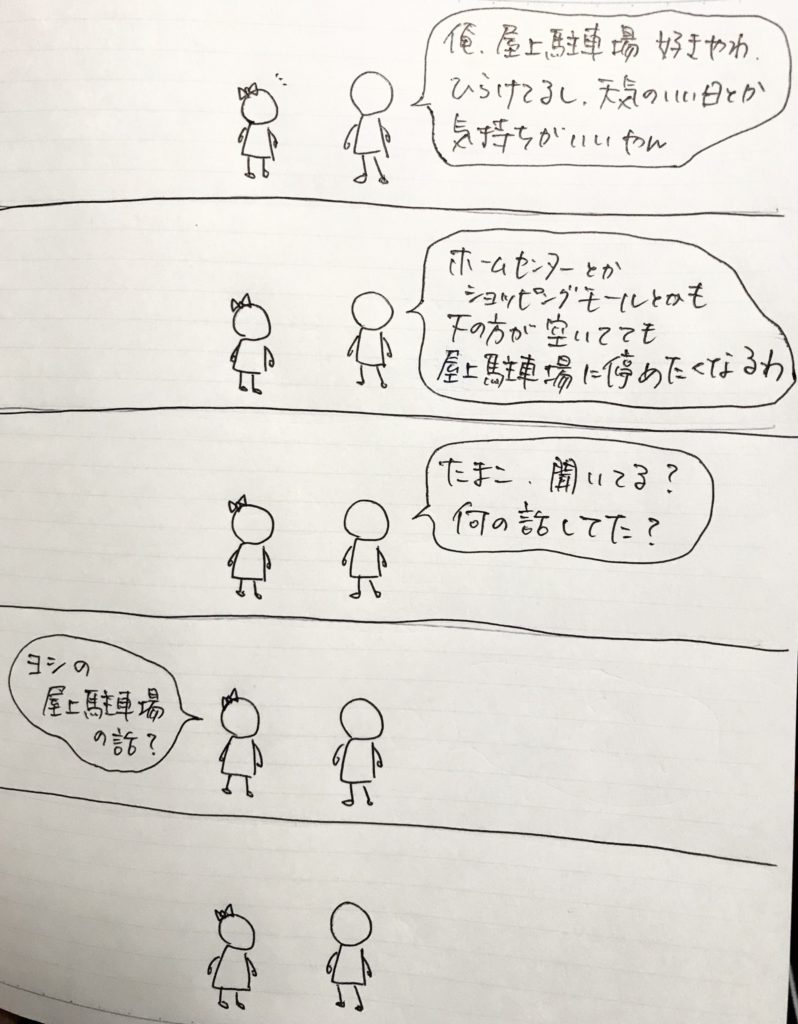 俺、屋上駐車場 好きやわ、
ひらけてるし、天気のいい日とか
気持ちがいいやん
ホームセンターとか
ショッピングモールとかも
下の方が空いてても
屋上駐車場に停めたくなるわ
たまこ、聞いてる?
何の話してた?
ヨシの
屋上駐車場
の話?